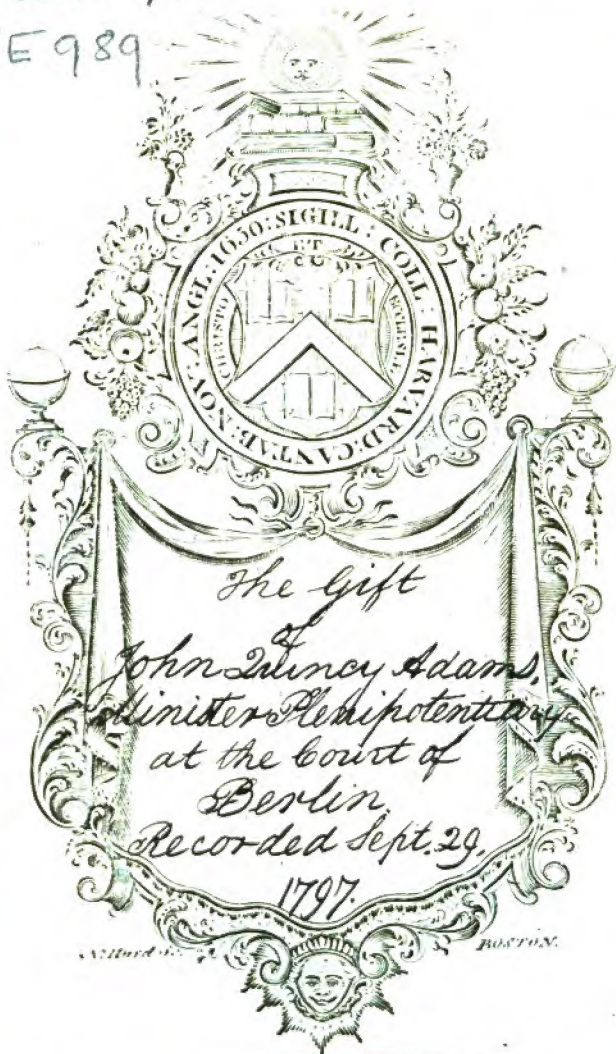 E989
SIGILL : COLL : HARVARD : CANTAB : NOV : ANGL : 1650 :
CHRISTO ET ECCLESIÆ
The Gift
of
John Quincy Adams,
Minister Plenipotentiary
at the Court of
Berlin.
Recorded Sept. 29,
1797.
N. Hurd
BOSTON.